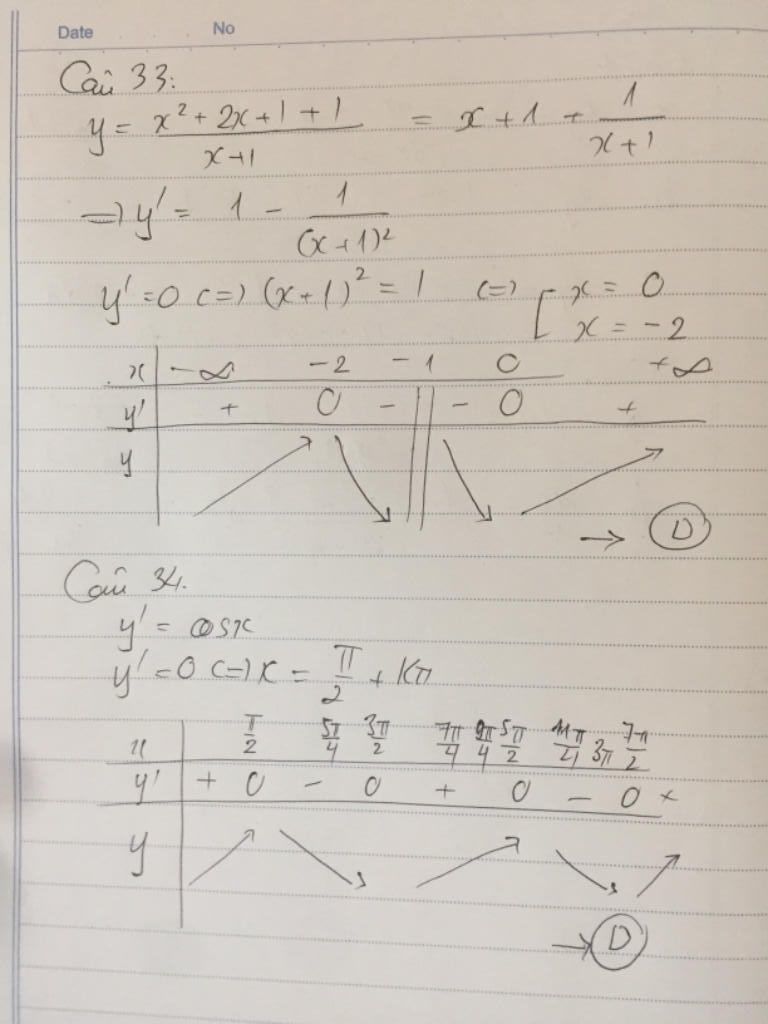 Date No
Câu 33:
y = \frac{x^2 + 2x + 1 + 1}{x+1} = x + 1 + \frac{1}{x+1}
=> y' = 1 - \frac{1}{(x+1)^2}
y' = 0 <=> (x+1)^2 = 1 <=> [ x = 0
x = -2
x -∞ -2 -1 0 +∞
y' + 0 - || - 0 +
y ↗ ↘ || ↘ ↗
→ D
Câu 34.
y' = cosx
y' = 0 <=> x = \frac{π}{2} + kπ
x \frac{π}{2} \frac{5π}{4} \frac{3π}{2} \frac{7π}{4} \frac{9π}{4} \frac{5π}{2} \frac{11π}{4} 3π \frac{7π}{2}
y' + 0 - 0 + 0 - 0 +
y ↗ ↘ ↗ ↘ ↗
→ D